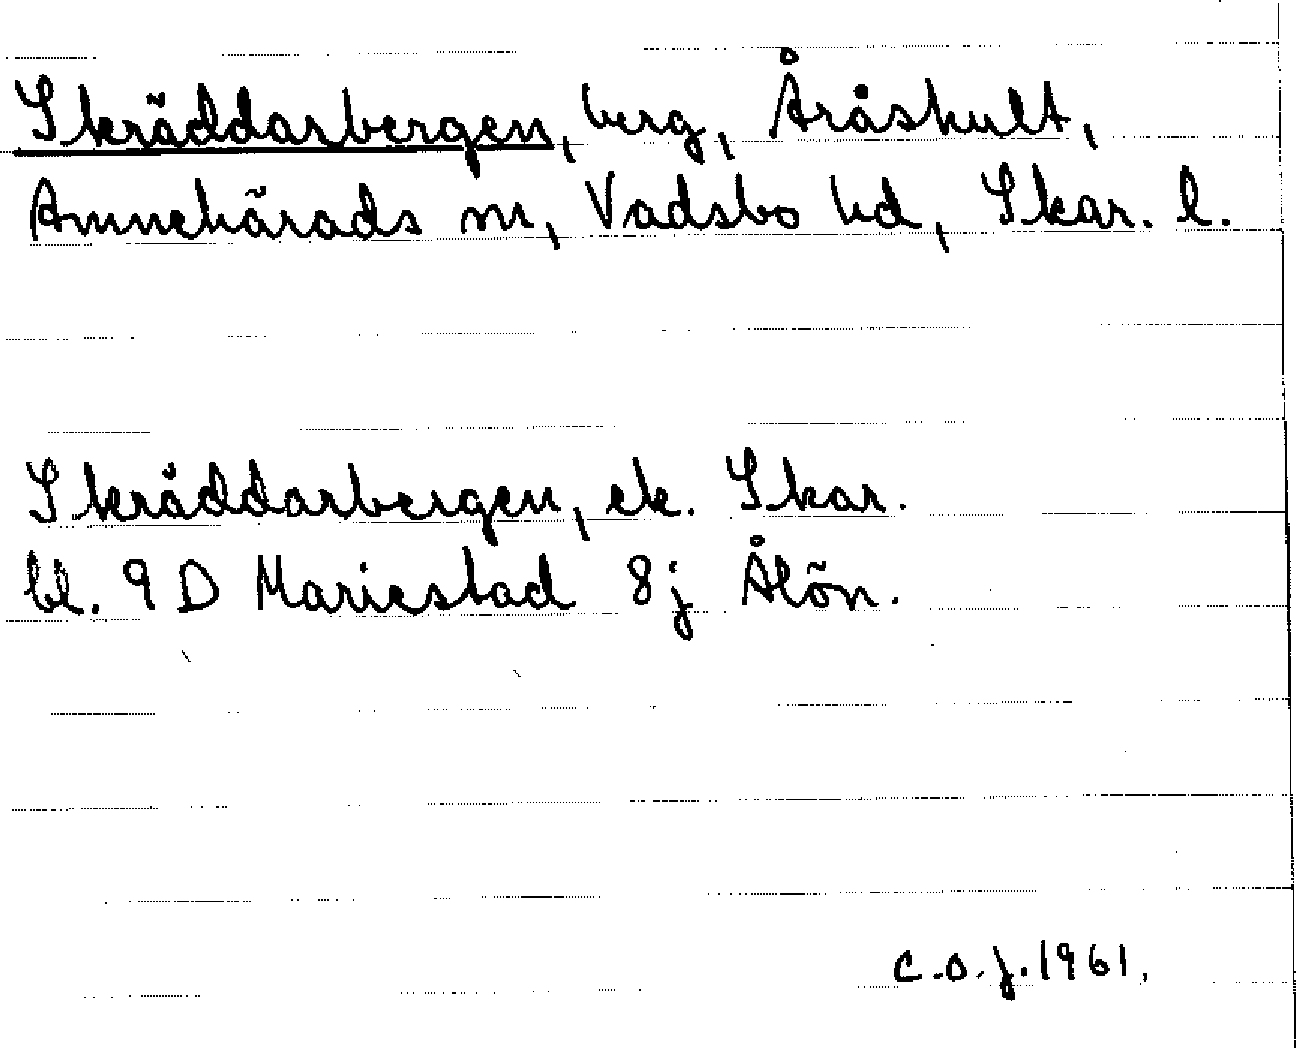 Skräddarbergen, berg, Åråskult,
Amnehärads sn, Vadsbo hd, Skar. l.
Skräddarbergen, ek. Skar.
bl. 9 D Mariestad 8j Ålön.
C.O.J. 1961.